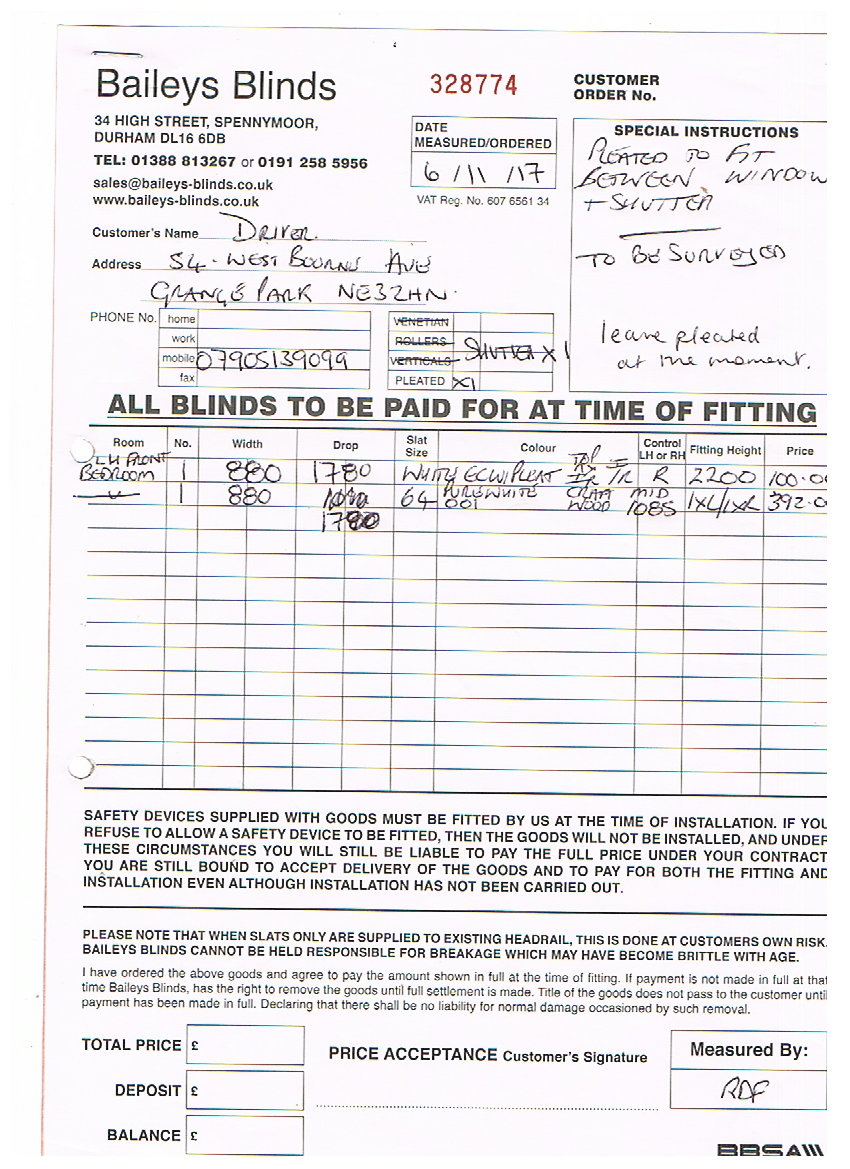 Baileys Blinds
328774
CUSTOMER
ORDER No.
34 HIGH STREET, SPENNYMOOR,
DURHAM DL16 6DB
TEL: 01388 813267 or 0191 258 5956
sales@baileys-blinds.co.uk
www.baileys-blinds.co.uk
DATE
MEASURED/ORDERED
6/11/17
VAT Reg. No. 607 6561 34
SPECIAL INSTRUCTIONS
PLEATED TO FIT
BETWEEN WINDOW
+ SHUTTER
TO BE SURVEYED
leave pleated
at the moment.
Customer's Name DRIVER.
Address 54 - WEST BOURNE AVE
GRANGE PARK NE32HN.
PHONE No. home
work
mobile 07905139099
fax
VENETIAN
ROLLERS
VERTICALS SHUTTER X 1
PLEATED X1
ALL BLINDS TO BE PAID FOR AT TIME OF FITTING
Room No. Width Drop Slat Size Colour Control LH or RH Fitting Height Price
LH FRONT
BEDROOM 1 880 1780 WHITE R 2200 100.0
1 880 64 PURE WHITE 001 CRAFT WOOD MID 1085 1XL/1XR 392.0
1780
SAFETY DEVICES SUPPLIED WITH GOODS MUST BE FITTED BY US AT THE TIME OF INSTALLATION. IF YOU
REFUSE TO ALLOW A SAFETY DEVICE TO BE FITTED, THEN THE GOODS WILL NOT BE INSTALLED, AND UNDER
THESE CIRCUMSTANCES YOU WILL STILL BE LIABLE TO PAY THE FULL PRICE UNDER YOUR CONTRACT
YOU ARE STILL BOUND TO ACCEPT DELIVERY OF THE GOODS AND TO PAY FOR BOTH THE FITTING AND
INSTALLATION EVEN ALTHOUGH INSTALLATION HAS NOT BEEN CARRIED OUT.
PLEASE NOTE THAT WHEN SLATS ONLY ARE SUPPLIED TO EXISTING HEADRAIL, THIS IS DONE AT CUSTOMERS OWN RISK.
BAILEYS BLINDS CANNOT BE HELD RESPONSIBLE FOR BREAKAGE WHICH MAY HAVE BECOME BRITTLE WITH AGE.
I have ordered the above goods and agree to pay the amount shown in full at the time of fitting. If payment is not made in full at that
time Baileys Blinds, has the right to remove the goods until full settlement is made. Title of the goods does not pass to the customer until
payment has been made in full. Declaring that there shall be no liability for normal damage occasioned by such removal.
TOTAL PRICE £
DEPOSIT £
BALANCE £
PRICE ACCEPTANCE Customer's Signature
Measured By:
RDF
BBSA